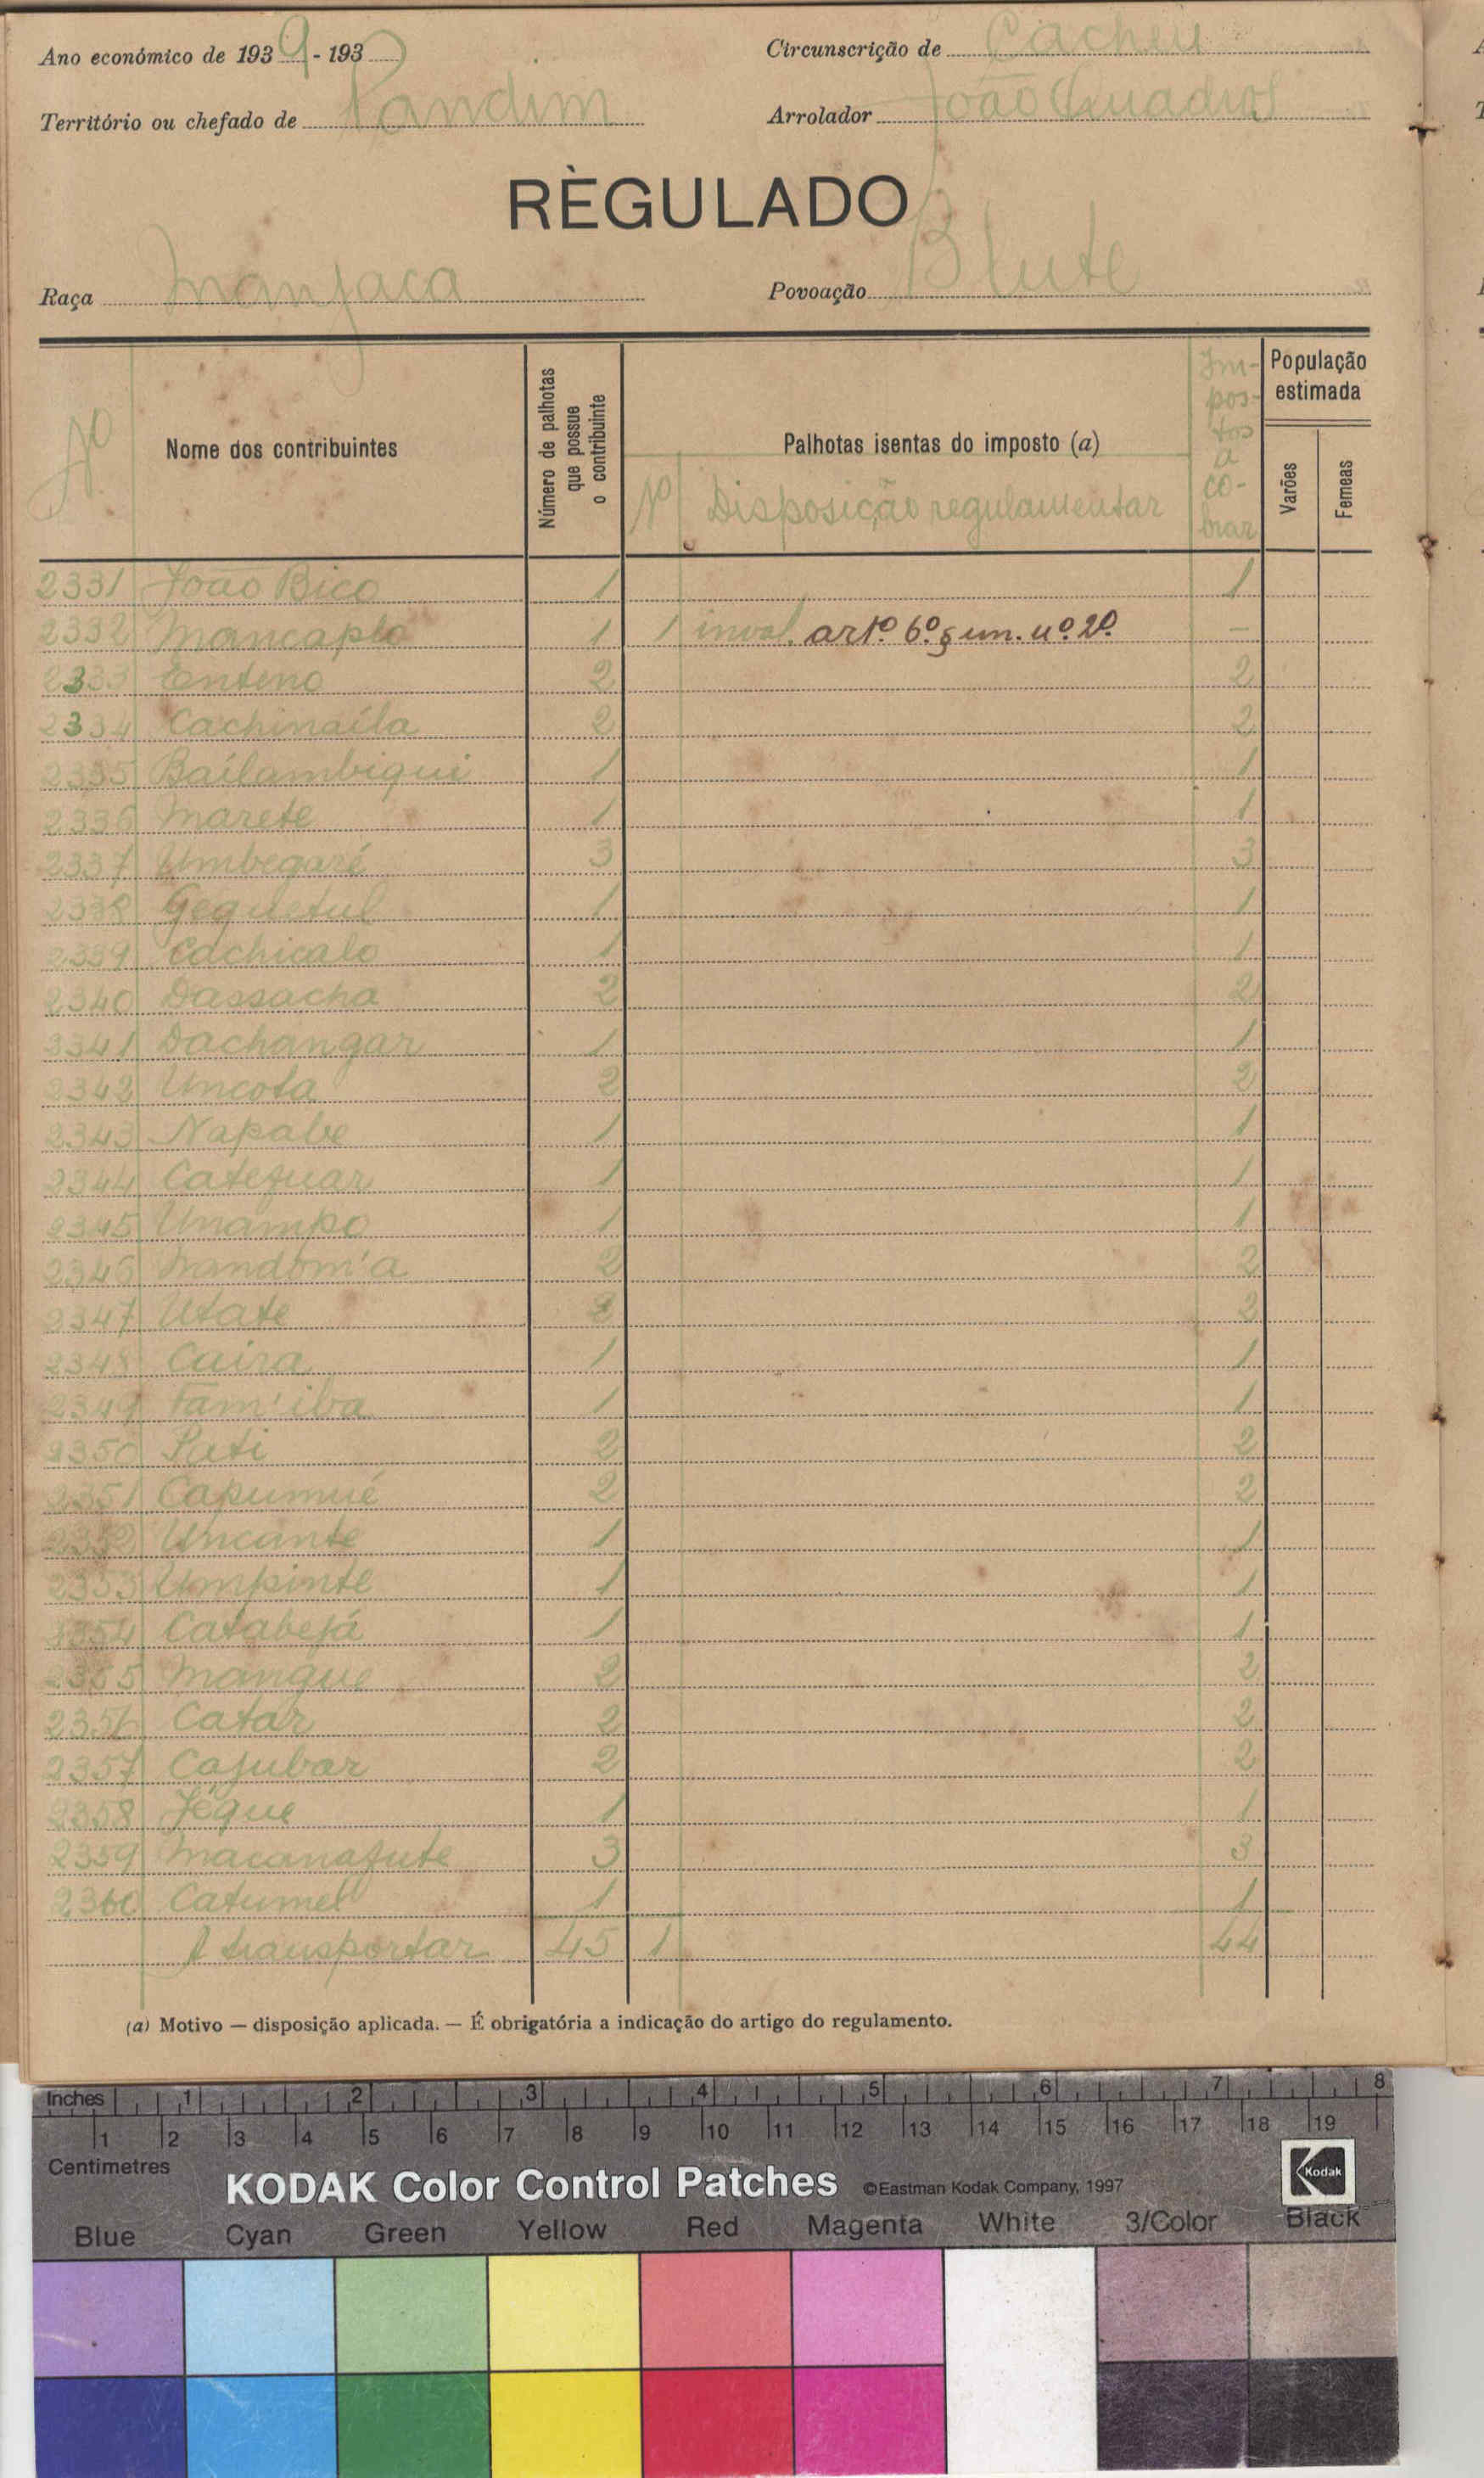 Ano económico de 1939-193
Circunscrição de Cacheu
Território ou chefado de Pandim
Arrolador João Quadros
RÈGULADO
Raça Manjaca
Povoação Blute
Nº
Nome dos contribuintes
Número de palhotas que possue o contribuinte
Palhotas isentas do imposto (a)
Nº Disposição regulamentar
Impostos a cobrar
População estimada
Varões
Femeas
2331 João Bico 1 1
2332 Mancaplo 1 1 inval. artº. 6º. § un. nº 2º. -
2333 Enteno 2 2
2334 Cachinaíla 2 2
2335 Bailambiqui 1 1
2336 Marete 1 1
2337 Umbegaré 3 3
2338 Gequetul 1 1
2339 Cachicalo 1 1
2340 Dassacha 2 2
2341 Dachangar 1 1
2342 Uncota 2 2
2343 Napabe 1 1
2344 Catequar 1 1
2345 Unampo 1 1
2346 Nandom'a 2 2
2347 Utate 2 2
2348 Caira 1 1
2349 Fam'iba 1 1
2350 Pati 2 2
2351 Capumué 2 2
2352 Uncante 1 1
2353 Umpinte 1 1
2354 Catabejá 1 1
2355 Mangue 2 2
2356 Catar 2 2
2357 Cajubar 2 2
2358 Jéque 1 1
2359 Macanajute 3 3
2360 Catumel 1 1
A transportar 45 1 44
(a) Motivo — disposição aplicada. — É obrigatória a indicação do artigo do regulamento.
Inches 1 2 3 4 5 6 7 8
1 2 3 4 5 6 7 8 9 10 11 12 13 14 15 16 17 18 19
Centimetres
KODAK Color Control Patches ©Eastman Kodak Company, 1997 Kodak
Blue Cyan Green Yellow Red Magenta White 3/Color Black